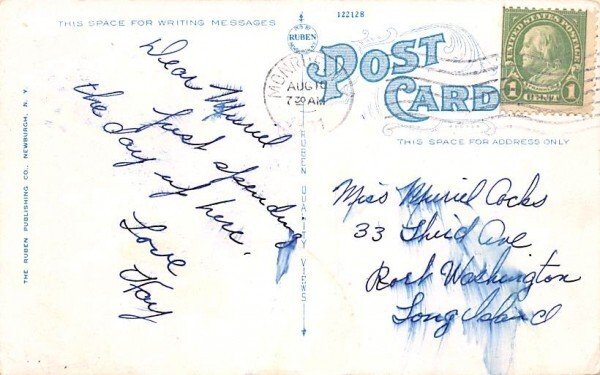 THIS SPACE FOR WRITING MESSAGES
122128
RUBEN
POST
CARD
AUG 19
7 30 AM
UNITED STATES POSTAGE
1 CENT 1
THIS SPACE FOR ADDRESS ONLY
Dear Muriel
Just spending
the day up here.
Love
Kay
Miss Muriel Cocks
33 Third Ave
Port Washington
Long Island
THE RUBEN PUBLISHING CO., NEWBURGH, N. Y.
RUBEN QUALITY VIEWS